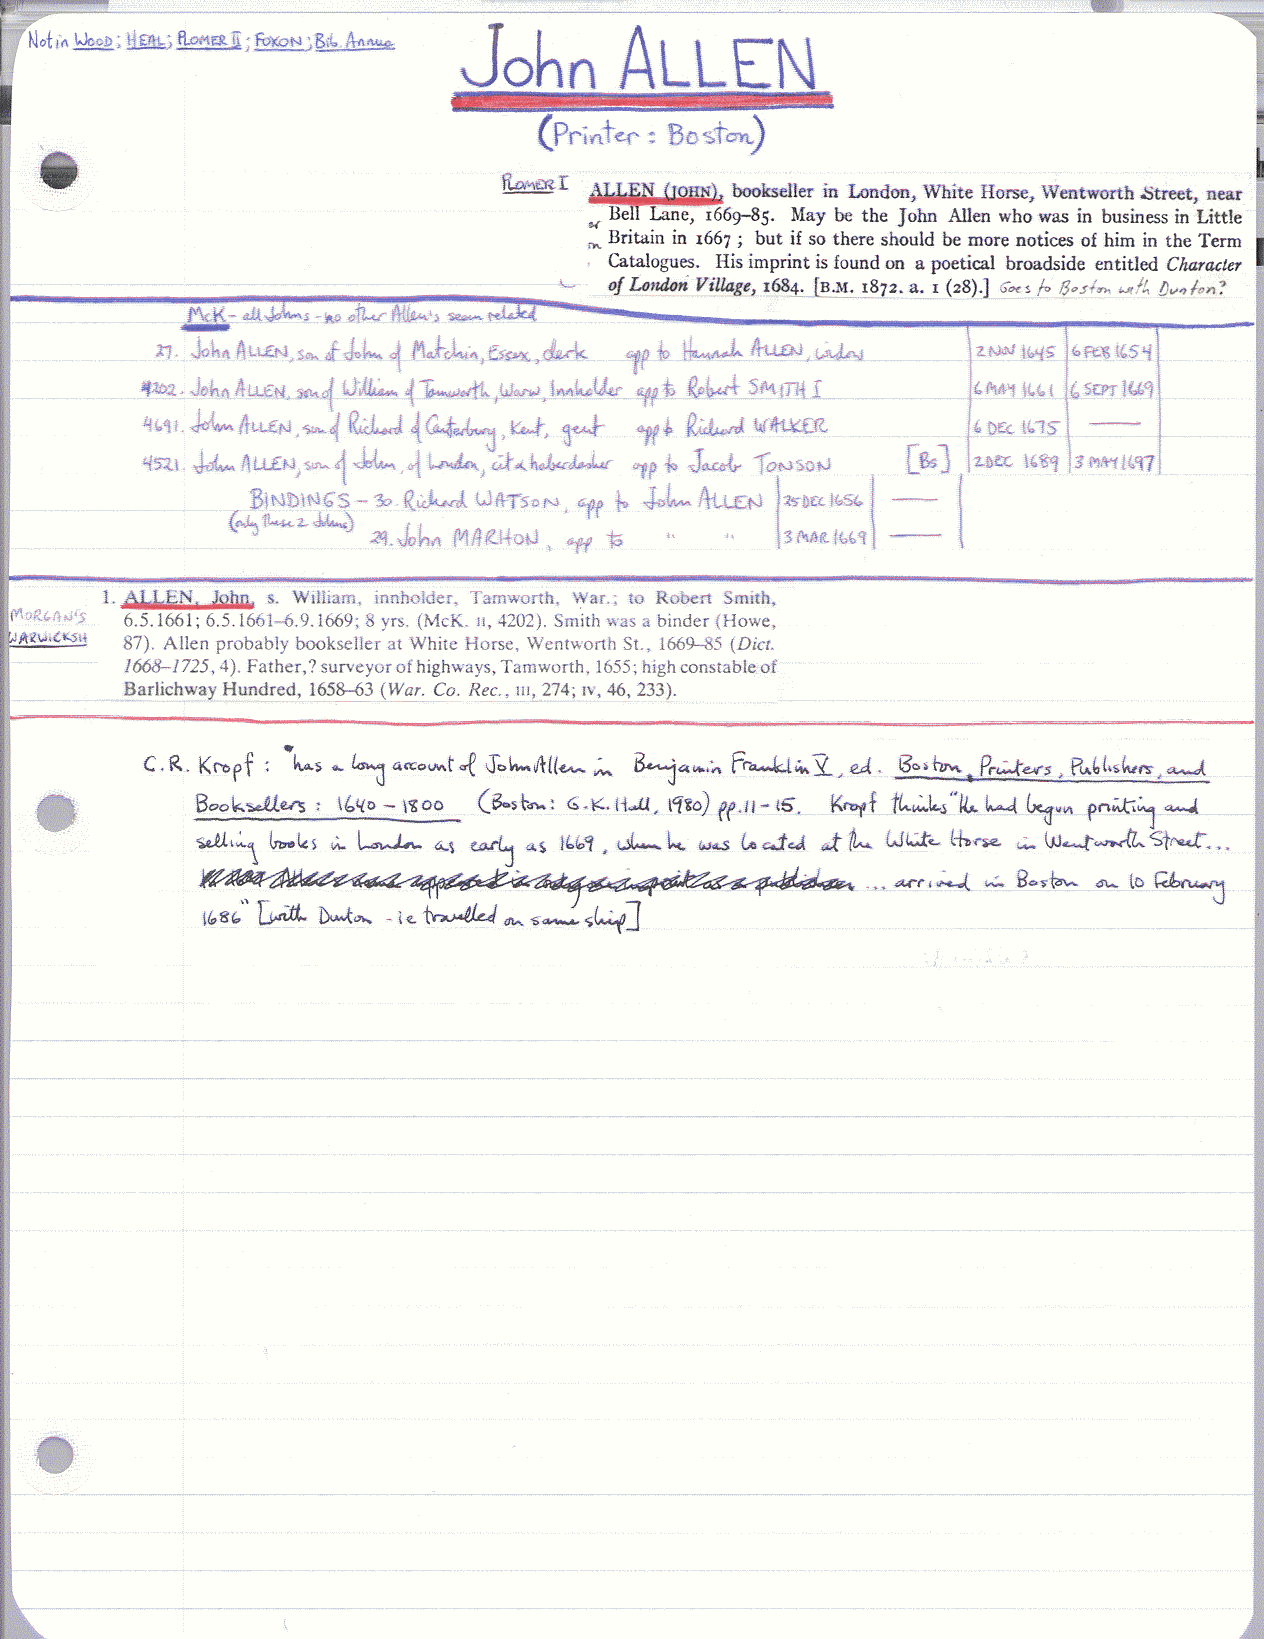 Not in WOOD; HEAL; PLOMER II; FOXON; Bib. Annua
John ALLEN
(Printer: Boston)
PLOMER I
ALLEN (JOHN), bookseller in London, White Horse, Wentworth Street, near
Bell Lane, 1669–85. May be the John Allen who was in business in Little
Britain in 1667; but if so there should be more notices of him in the Term
Catalogues. His imprint is found on a poetical broadside entitled Character
of London Village, 1684. [B.M. 1872. a. 1 (28).] Goes to Boston with Dunton?
McK - all Johns - no other Allen's seem related
27. John ALLEN, son of John of Matchin, Essex, clerk app to Hannah ALLEN, widow 2 NOV 1645 6 FEB 1654
4202. John ALLEN, son of William of Tamworth, Warw, Innholder app to Robert SMITH I 6 MAY 1661 6 SEPT 1669
4691. John ALLEN, son of Richard of Canterbury, Kent, gent app to Richard WALKER 6 DEC 1675 —
4521. John ALLEN, son of John, of London, cit & haberdasher app to Jacob TONSON [Bs] 2 DEC 1689 3 MAY 1697
BINDINGS - 30. Richard WATSON, app to John ALLEN 25 DEC 1656 —
(only these 2 Johns)
29. John MARHON, app to " " 3 MAR 1669 —
MORGAN'S
WARWICKSH
1. ALLEN, John, s. William, innholder, Tamworth, War.; to Robert Smith,
6.5.1661; 6.5.1661–6.9.1669; 8 yrs. (McK. II, 4202). Smith was a binder (Howe,
87). Allen probably bookseller at White Horse, Wentworth St., 1669–85 (Dict.
1668–1725, 4). Father,? surveyor of highways, Tamworth, 1655; high constable of
Barlichway Hundred, 1658–63 (War. Co. Rec., III, 274; IV, 46, 233).
C.R. Kropf : has a long account of John Allen in Benjamin Franklin V, ed. Boston Printers, Publishers, and
Booksellers : 1640 - 1800 (Boston: G.K. Hall, 1980) pp. 11-15. Kropf thinks "He had begun printing and
selling books in London as early as 1669, when he was located at the White Horse in Wentworth Street...
... arrived in Boston on 10 February
1686" [with Dunton - ie travelled on same ship]